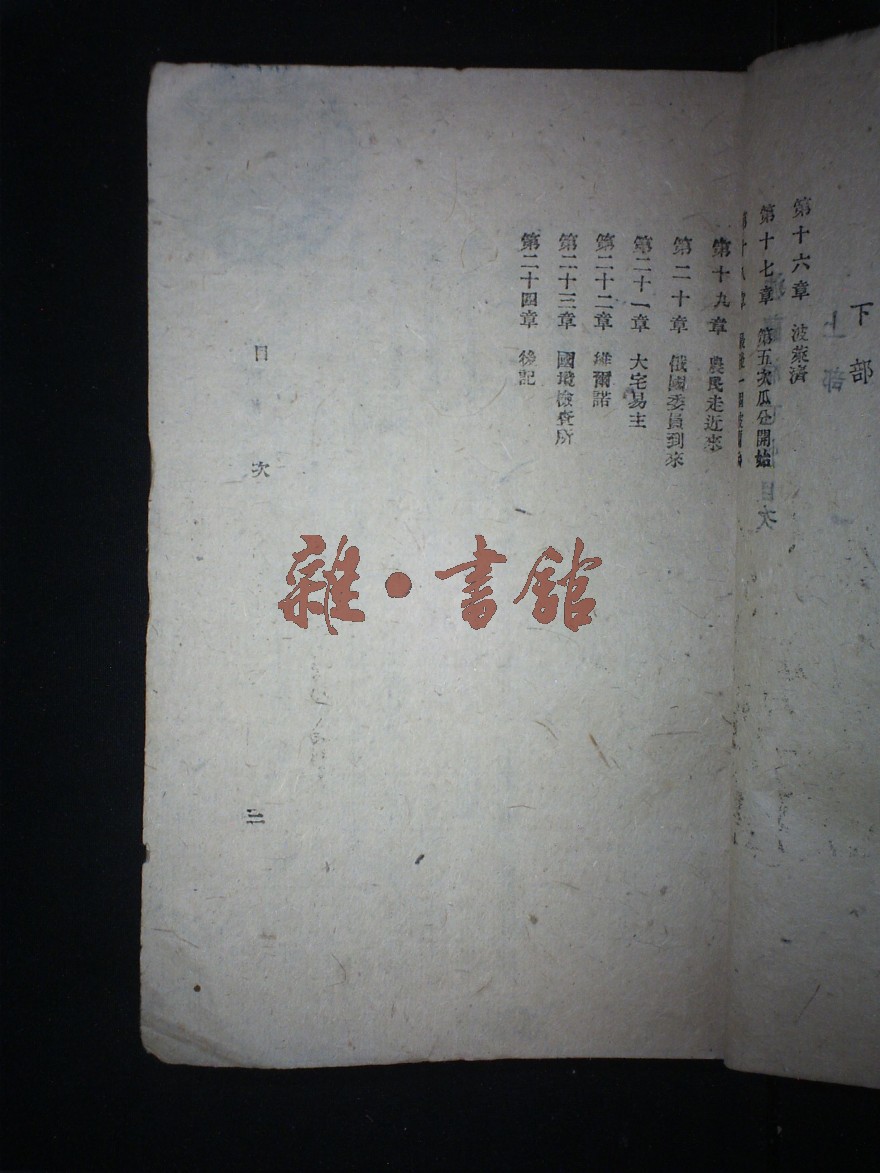 下部
第十六章 波萊濟
第十七章 第五次瓜分開始
第十八章
第十九章 農民走近來
第二十章 俄國委員到來
第二十一章 大宅易主
第二十二章 維爾諾
第二十三章 國境檢查所
第二十四章 後記
目次
二
雜·書舘